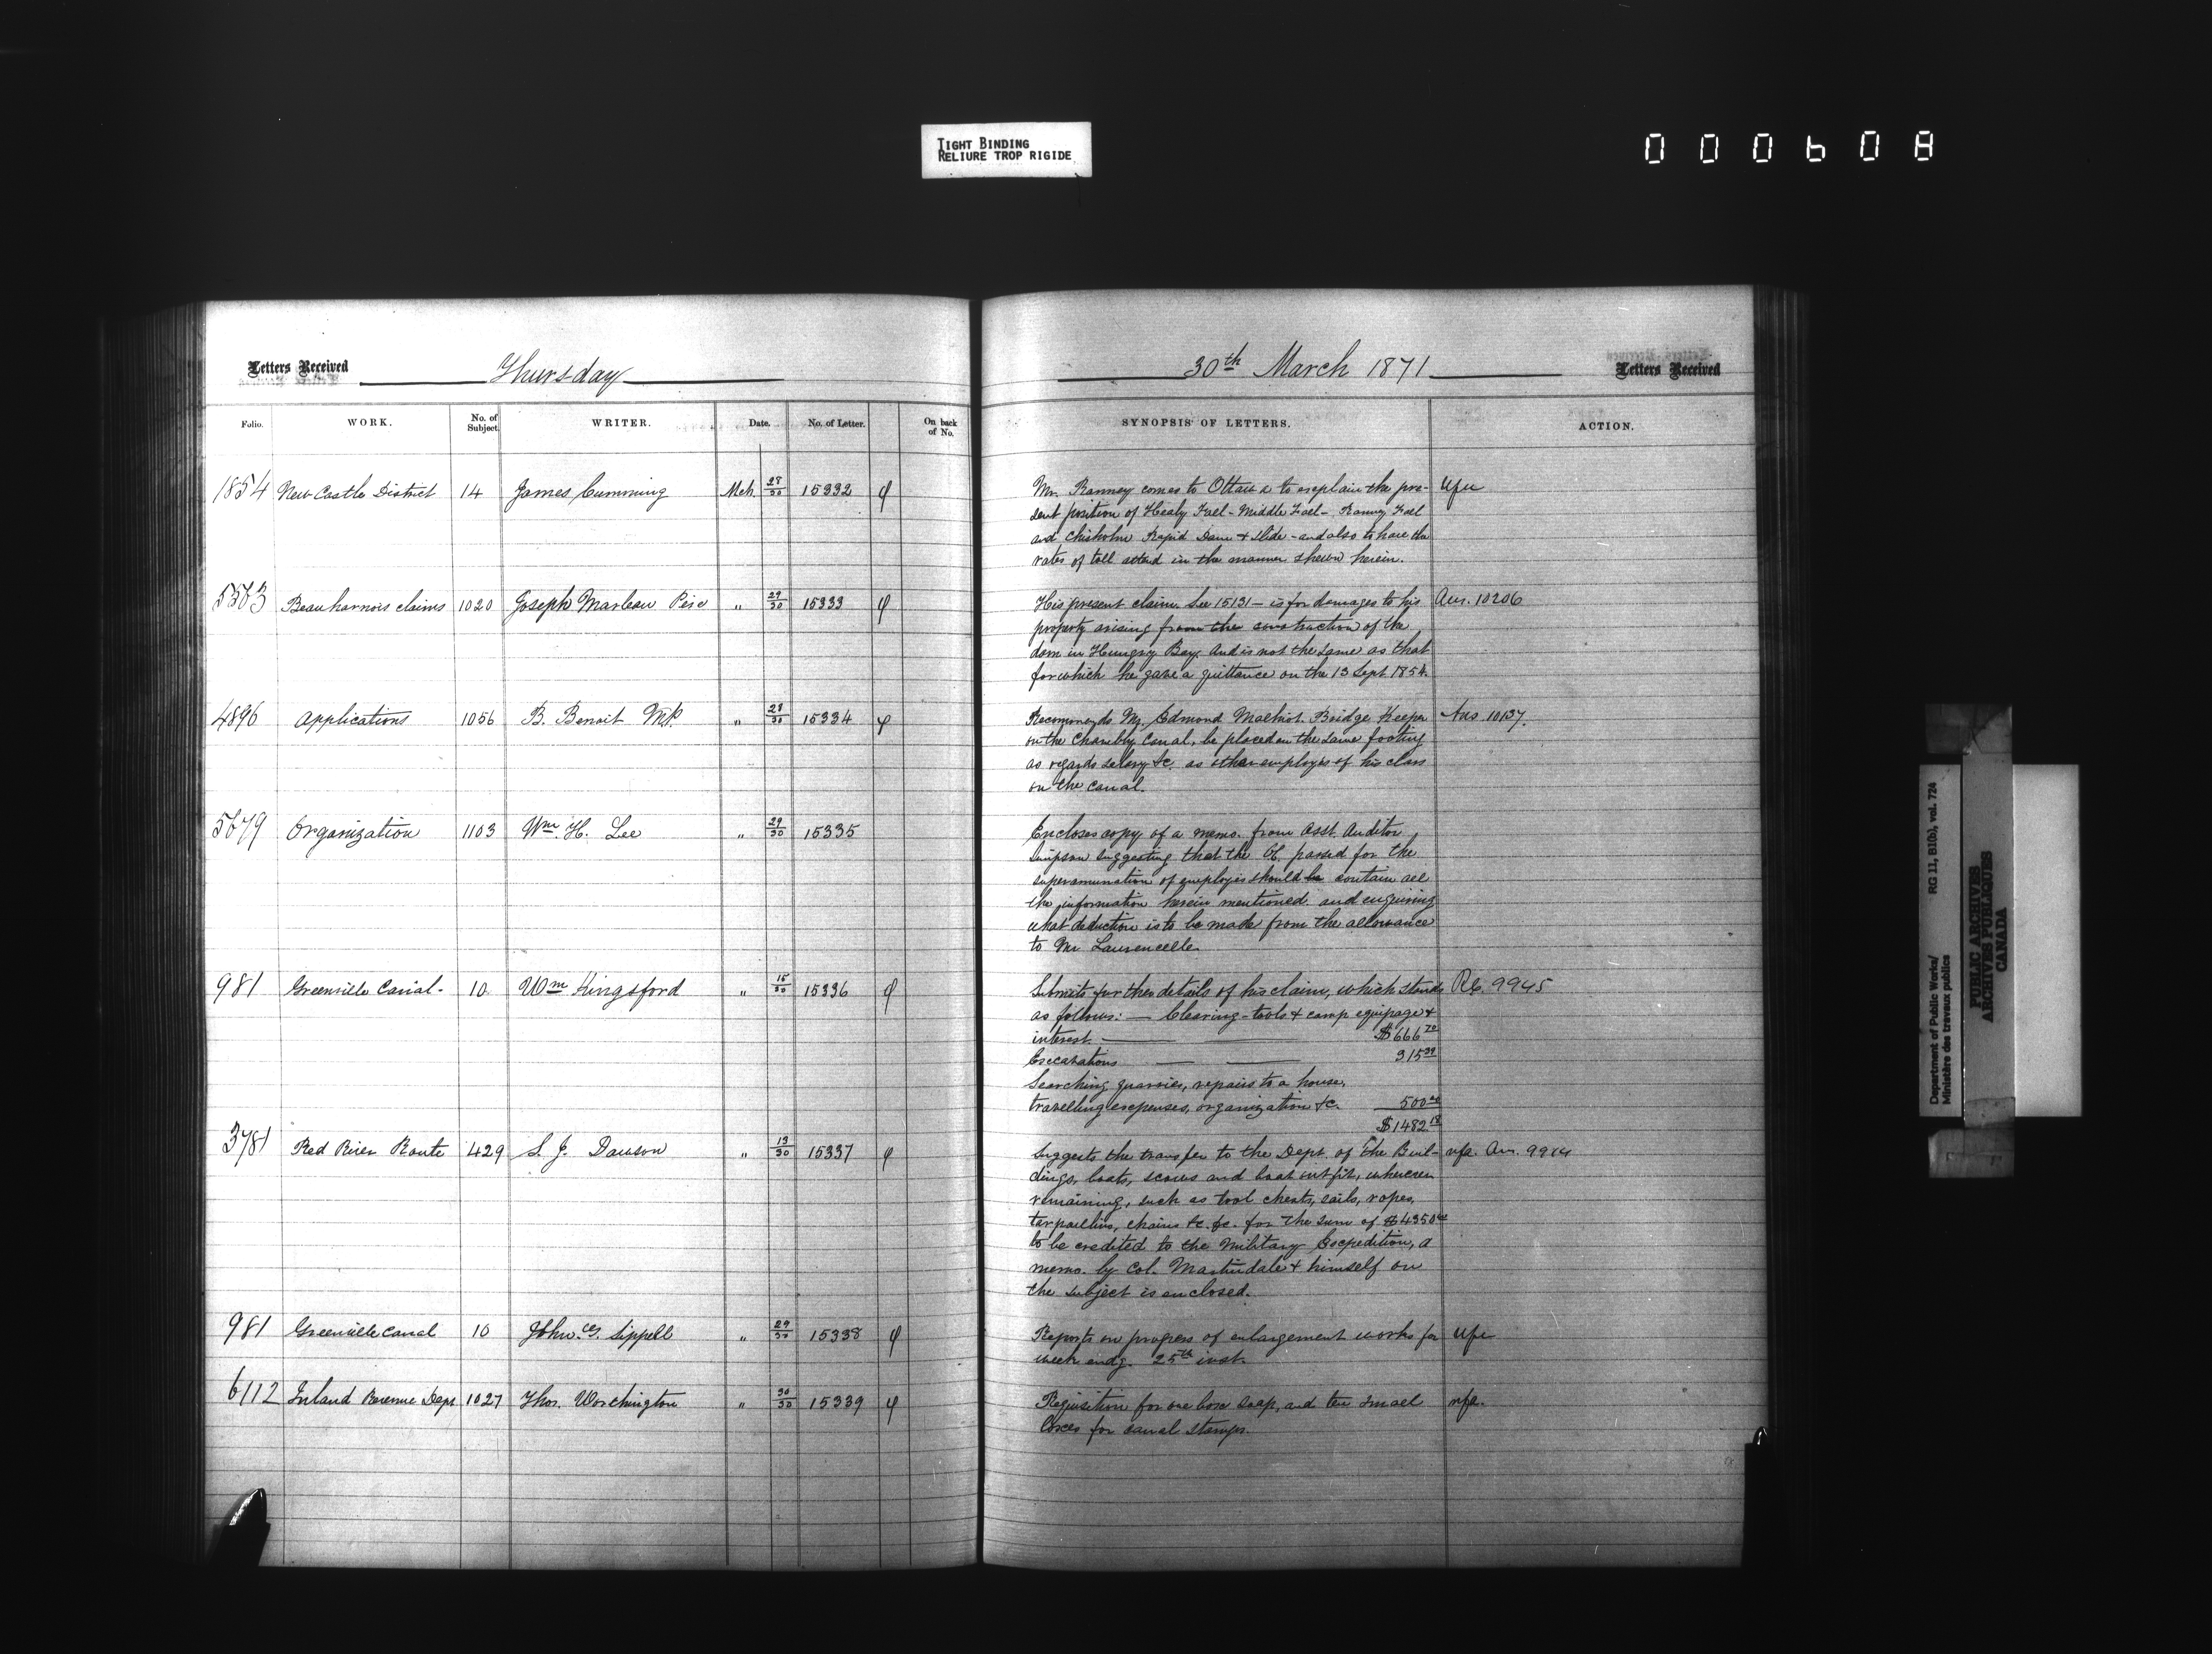 TIGHT BINDING
RELIURE TROP RIGIDE
000608
Letters Received Thursday 30th March 1871 Letters Received
Folio. WORK. No. of Subject. WRITER. Date. No. of Letter. On back of No. SYNOPSIS OF LETTERS. ACTION.
1854 New Castle District 14 James Cumming Mch 28/30 15332 φ Mr. Ranney comes to Ottawa to explain the pre-
sent position of Healy Fall - Middle Fall - Ranney Fall
and Chisholm Rapid Dam & Slide - and also to have the
rates of toll in the manner shewn herein.
Beauharnois claims 1020 Joseph Marleau Père " 29/30 15333 φ His present claim. See 15131 - is for damages to his Ans. 10206
property arising from the construction of the
dam in Hungry Bay. And is not the same as that
for which he gave a quittance on the 13 Sept 1854.
4896 Applications 1056 B. Benoit MP. " 28/30 15334 φ Recommends Mr. Edmond Malhiot Bridge Keeper Ans 10137.
on the Chambly Canal, be placed on the same footing
as regards salary &c. as other employés of his class
on the canal.
5679 Organization 1103 Wm. H. Lee " 29/30 15335 Encloses copy of a memo. from Asst. Auditor
Simpson suggesting that the OC. passed for the
superannuation of employés should be contain all
the information herein mentioned and enquiring
what deduction is to be made from the allowance
to Mr Laurencelle.
981 Grenville Canal - 10 Wm Kingsford " 15/30 15336 φ Submits further details of his claim, which stands 9945
as follows: — Clearing - tools & camp equipage &
interest. — $666 70
Excavations — 315 39
Searching quarries, repairs to a house,
travelling expenses, organization &c. 500 00
$1482 18
3781 Red River Route 429 S. J. Dawson " 13/30 15337 φ Suggests the transfer to the Dept. of the Buil- nfa. Ans.
dings, boats, scows and boat outfit, wherever
remaining, such as tool chests, sails, ropes,
tarpaulins, chains &c. &c. for the sum of $4350 00
to be credited to the Military Expedition, a
memo. by Col. Martindale & himself on
the subject is enclosed.
981 Grenville Canal 10 John G. Sippell " 29/30 15338 φ Reports on progress of enlargement works for
week endg. 25th inst.
6112 Inland Revenue Dept 1027 Thos. Worthington " 30/30 15339 φ Requisition for one box soap, and ten small nfa.
boxes for canal stamps.
Department of Public Works/ RG 11, B1(b), vol. 724
Ministère des travaux publics
PUBLIC ARCHIVES
ARCHIVES PUBLIQUES
CANADA